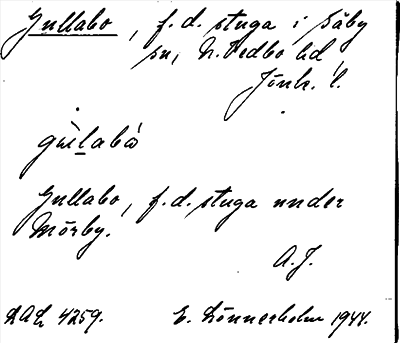 Gullabo, f.d. stuga i Säby
sn, N. Vedbo hd
Jönk. l.
gùlabò
Gullabo, f.d. stuga under
Mörby.
A.J.
DAL 4259. E. Lönnerholm 1944.